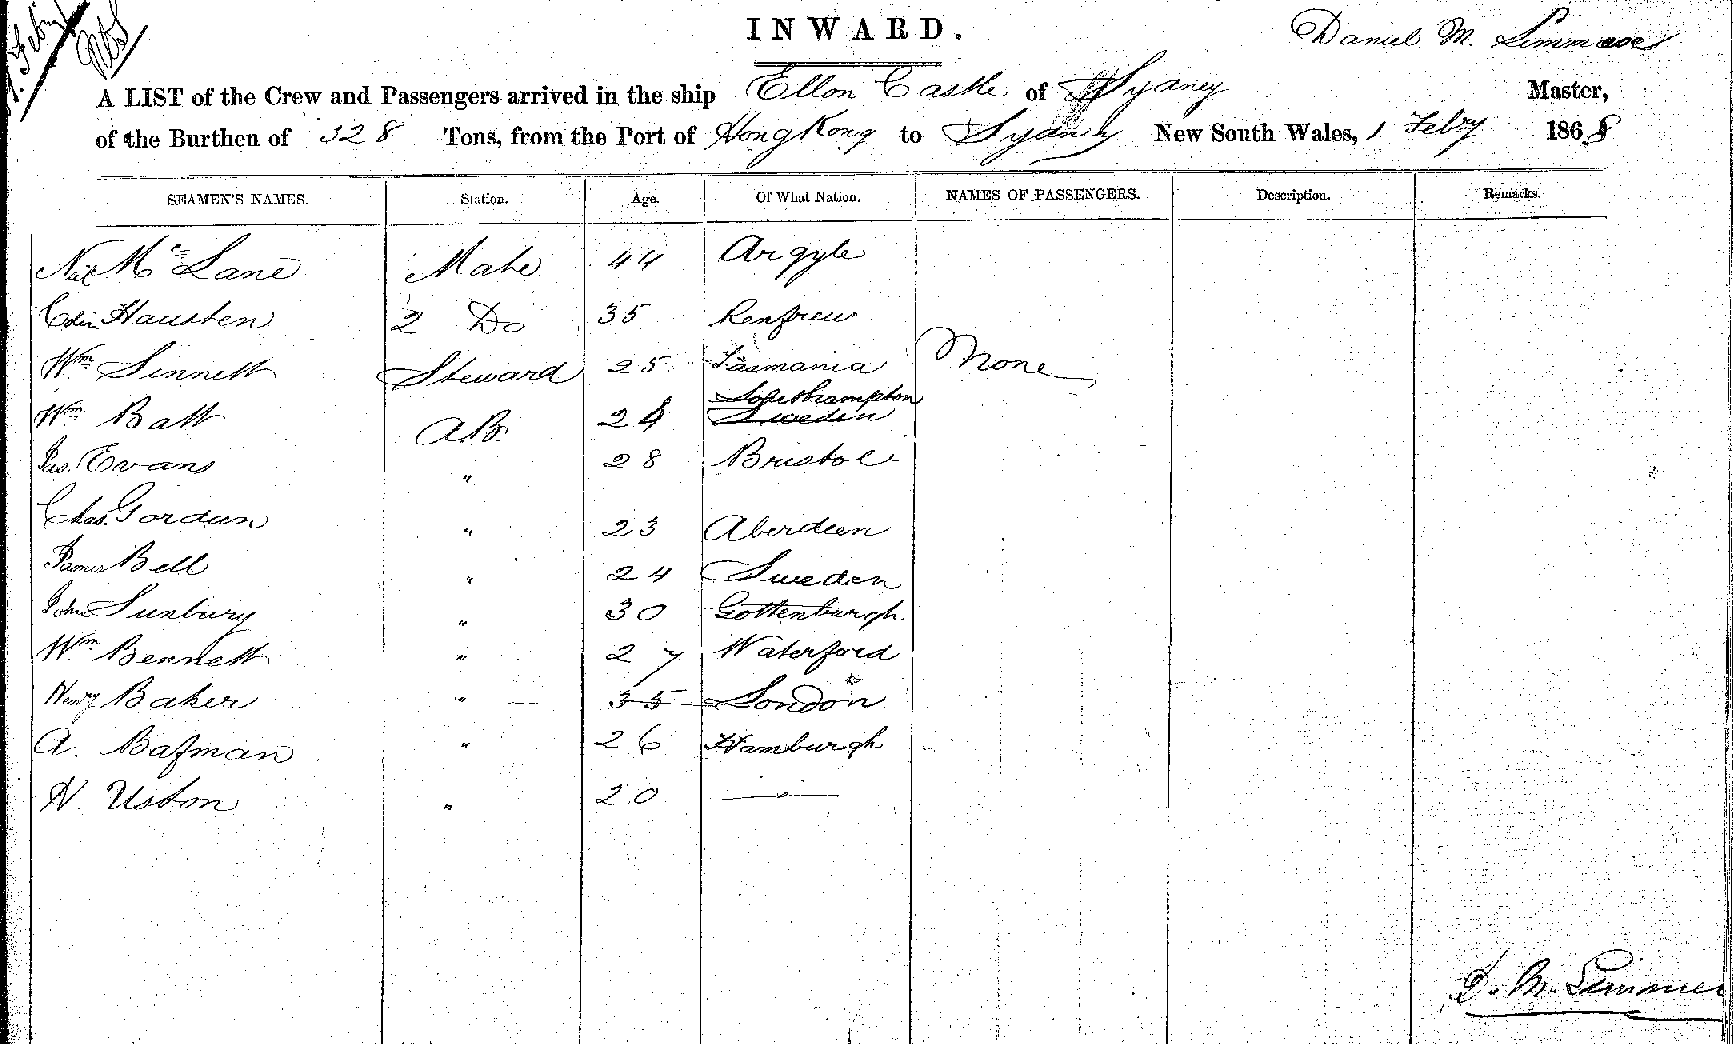 1. Feby
INWARD.
Daniel M. Simmons
A LIST of the Crew and Passengers arrived in the ship Ellon Castle of Sydney Master,
of the Burthen of 328 Tons, from the Port of Hong Kong to Sydney New South Wales, 1 Feby 1868
SEAMEN'S NAMES. Station. Age. Of What Nation. NAMES OF PASSENGERS. Description. Remarks.
McLane Mate 44 Argyle
Hausten 2 Do 35 Renfrew
Wm Sinnett Steward 25 Tasmania None
Southampton
Wm Batt AB. 24 Sweden
Jas. Evans " 28 Bristol
Chas. Gordun " 23 Aberdeen
James Bell " 24 Sweden
John Sunbury " 30 Gottenburgh
Wm Bennett " 27 Waterford
Henry Baker " 35 London
A. Bafman " 26 Hamburgh
H. Uston " 20 — " —
D. M. Simmons